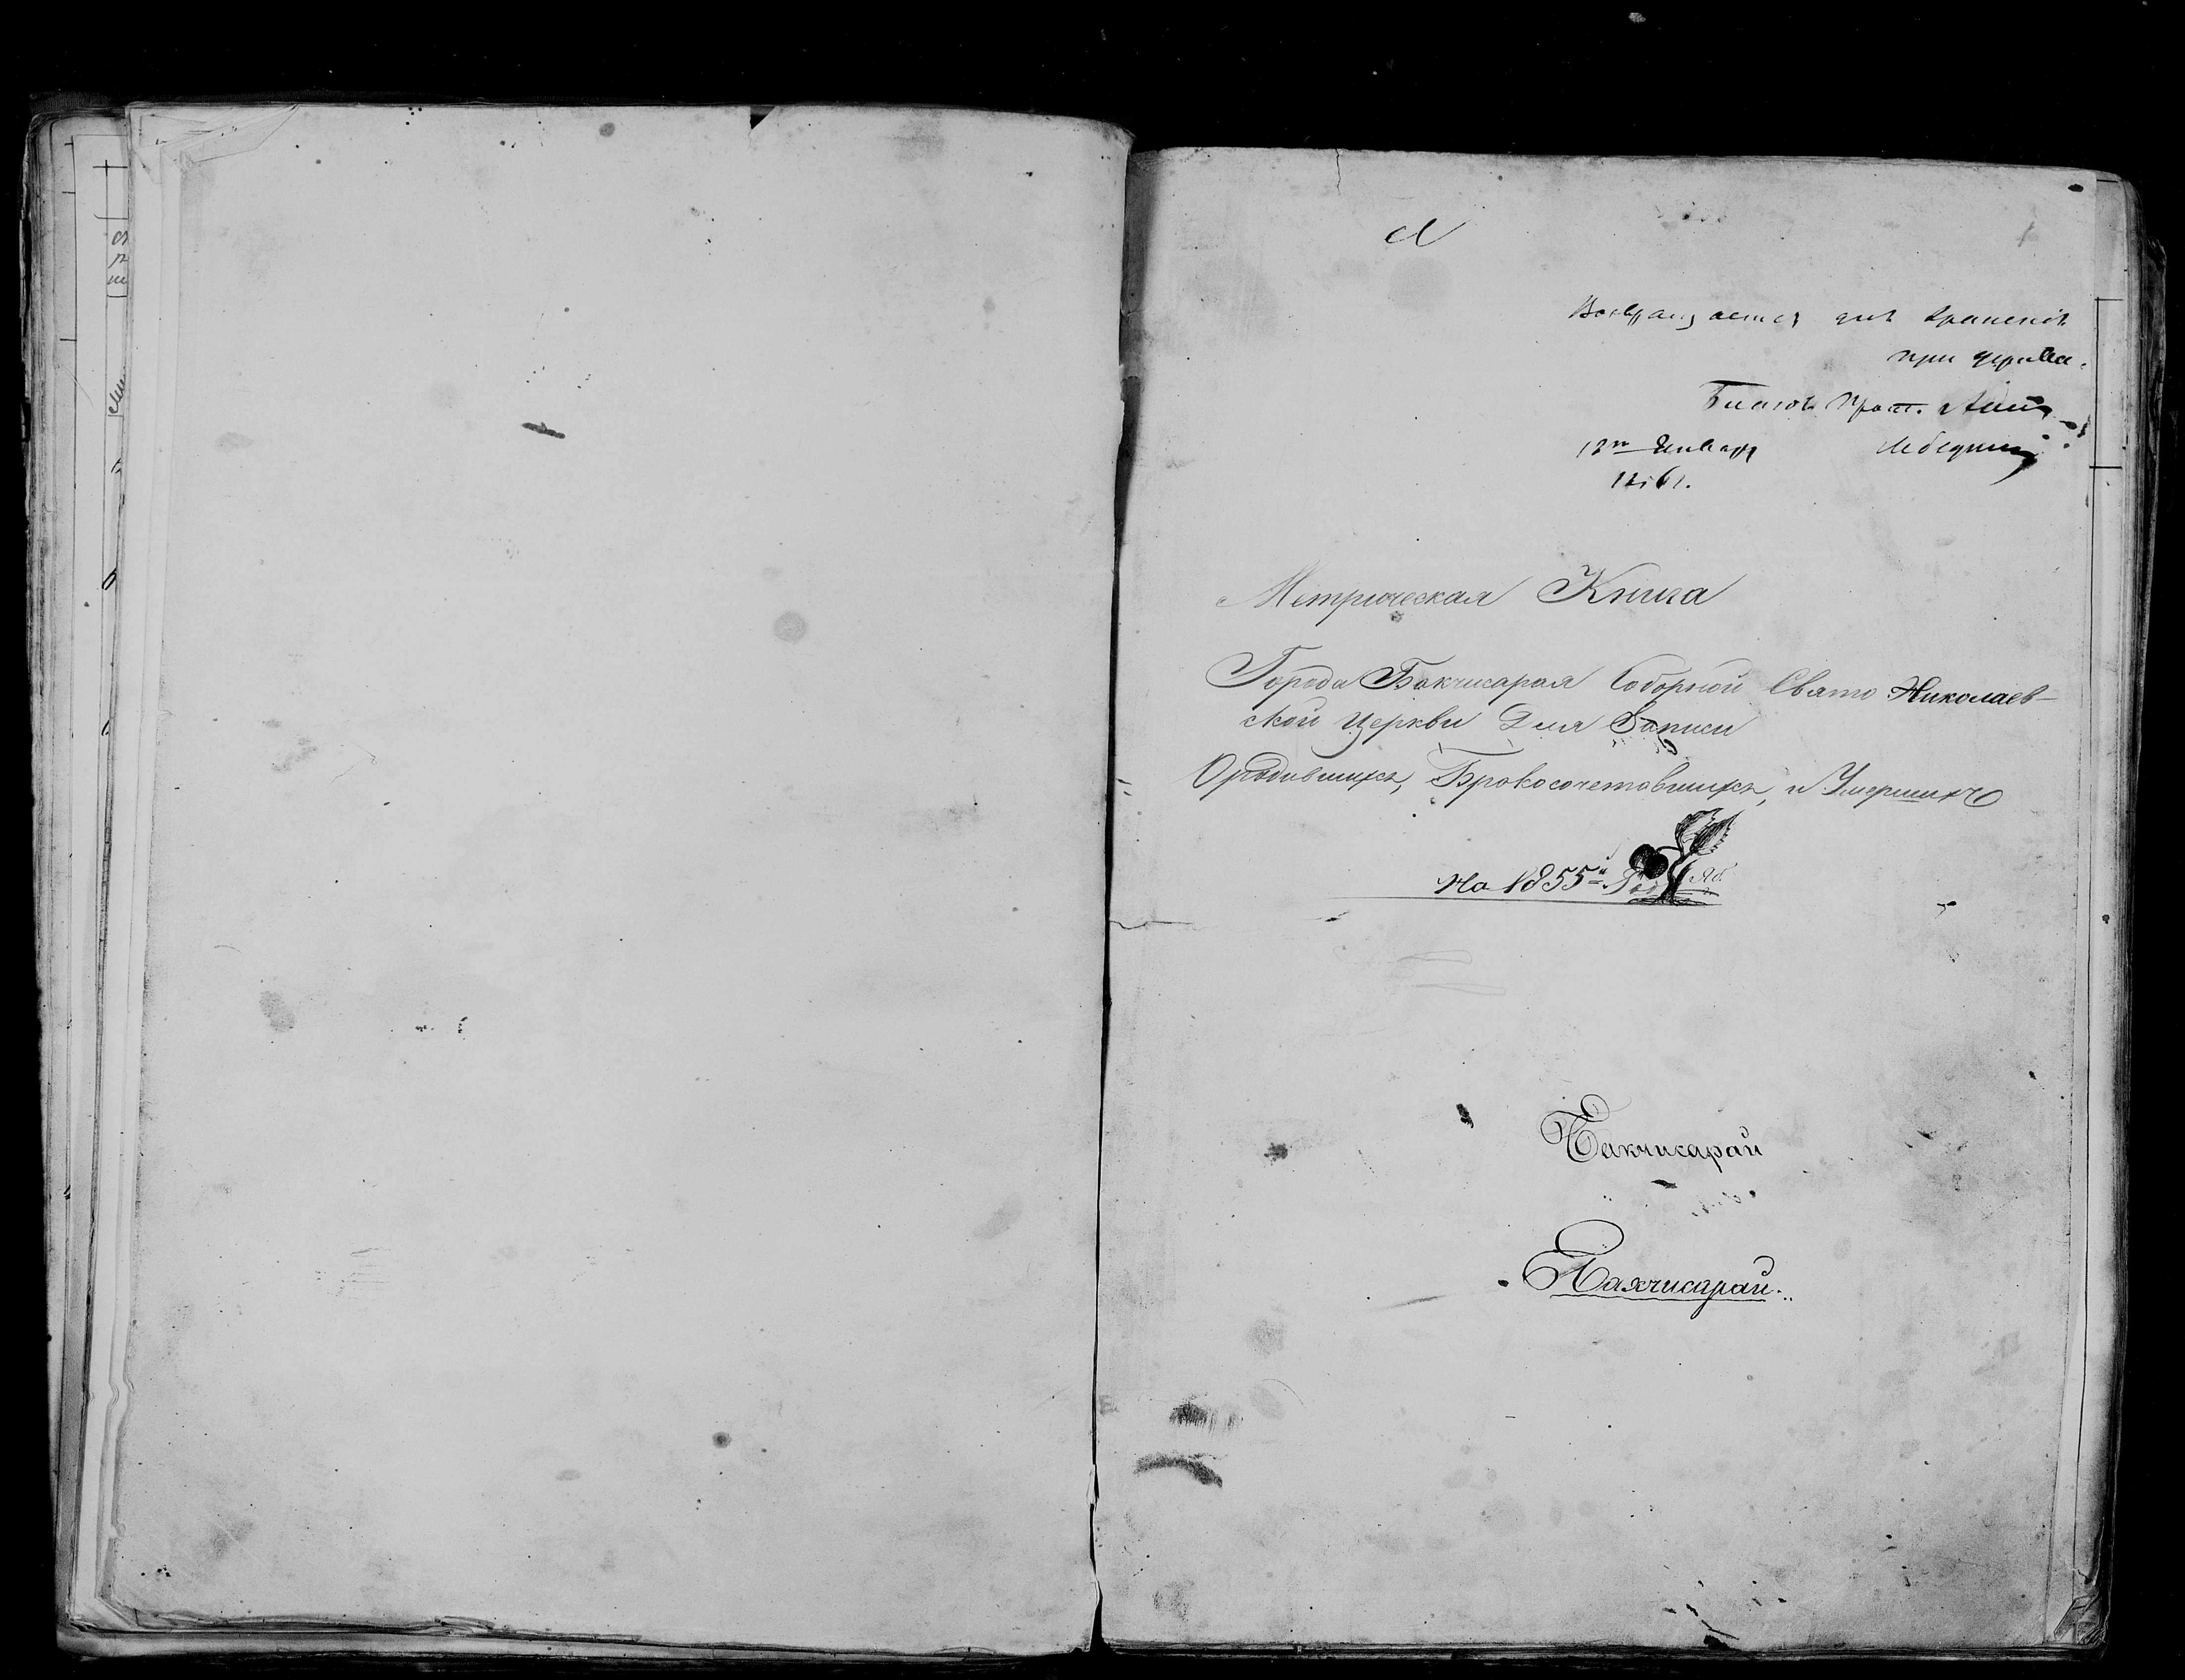 Возвращается для храненія
при церкви.
Благоч. Прот.
Лебединц
Января
1861.
Метрическая Книга
Города Бакчисарая Соборной Свято Николаев-
ской Церкви Для Записи
Ородившихся, Бракосочетавшихся, и Умершихъ
На 1855й Год
Бакчисарай
Бахчисарай.